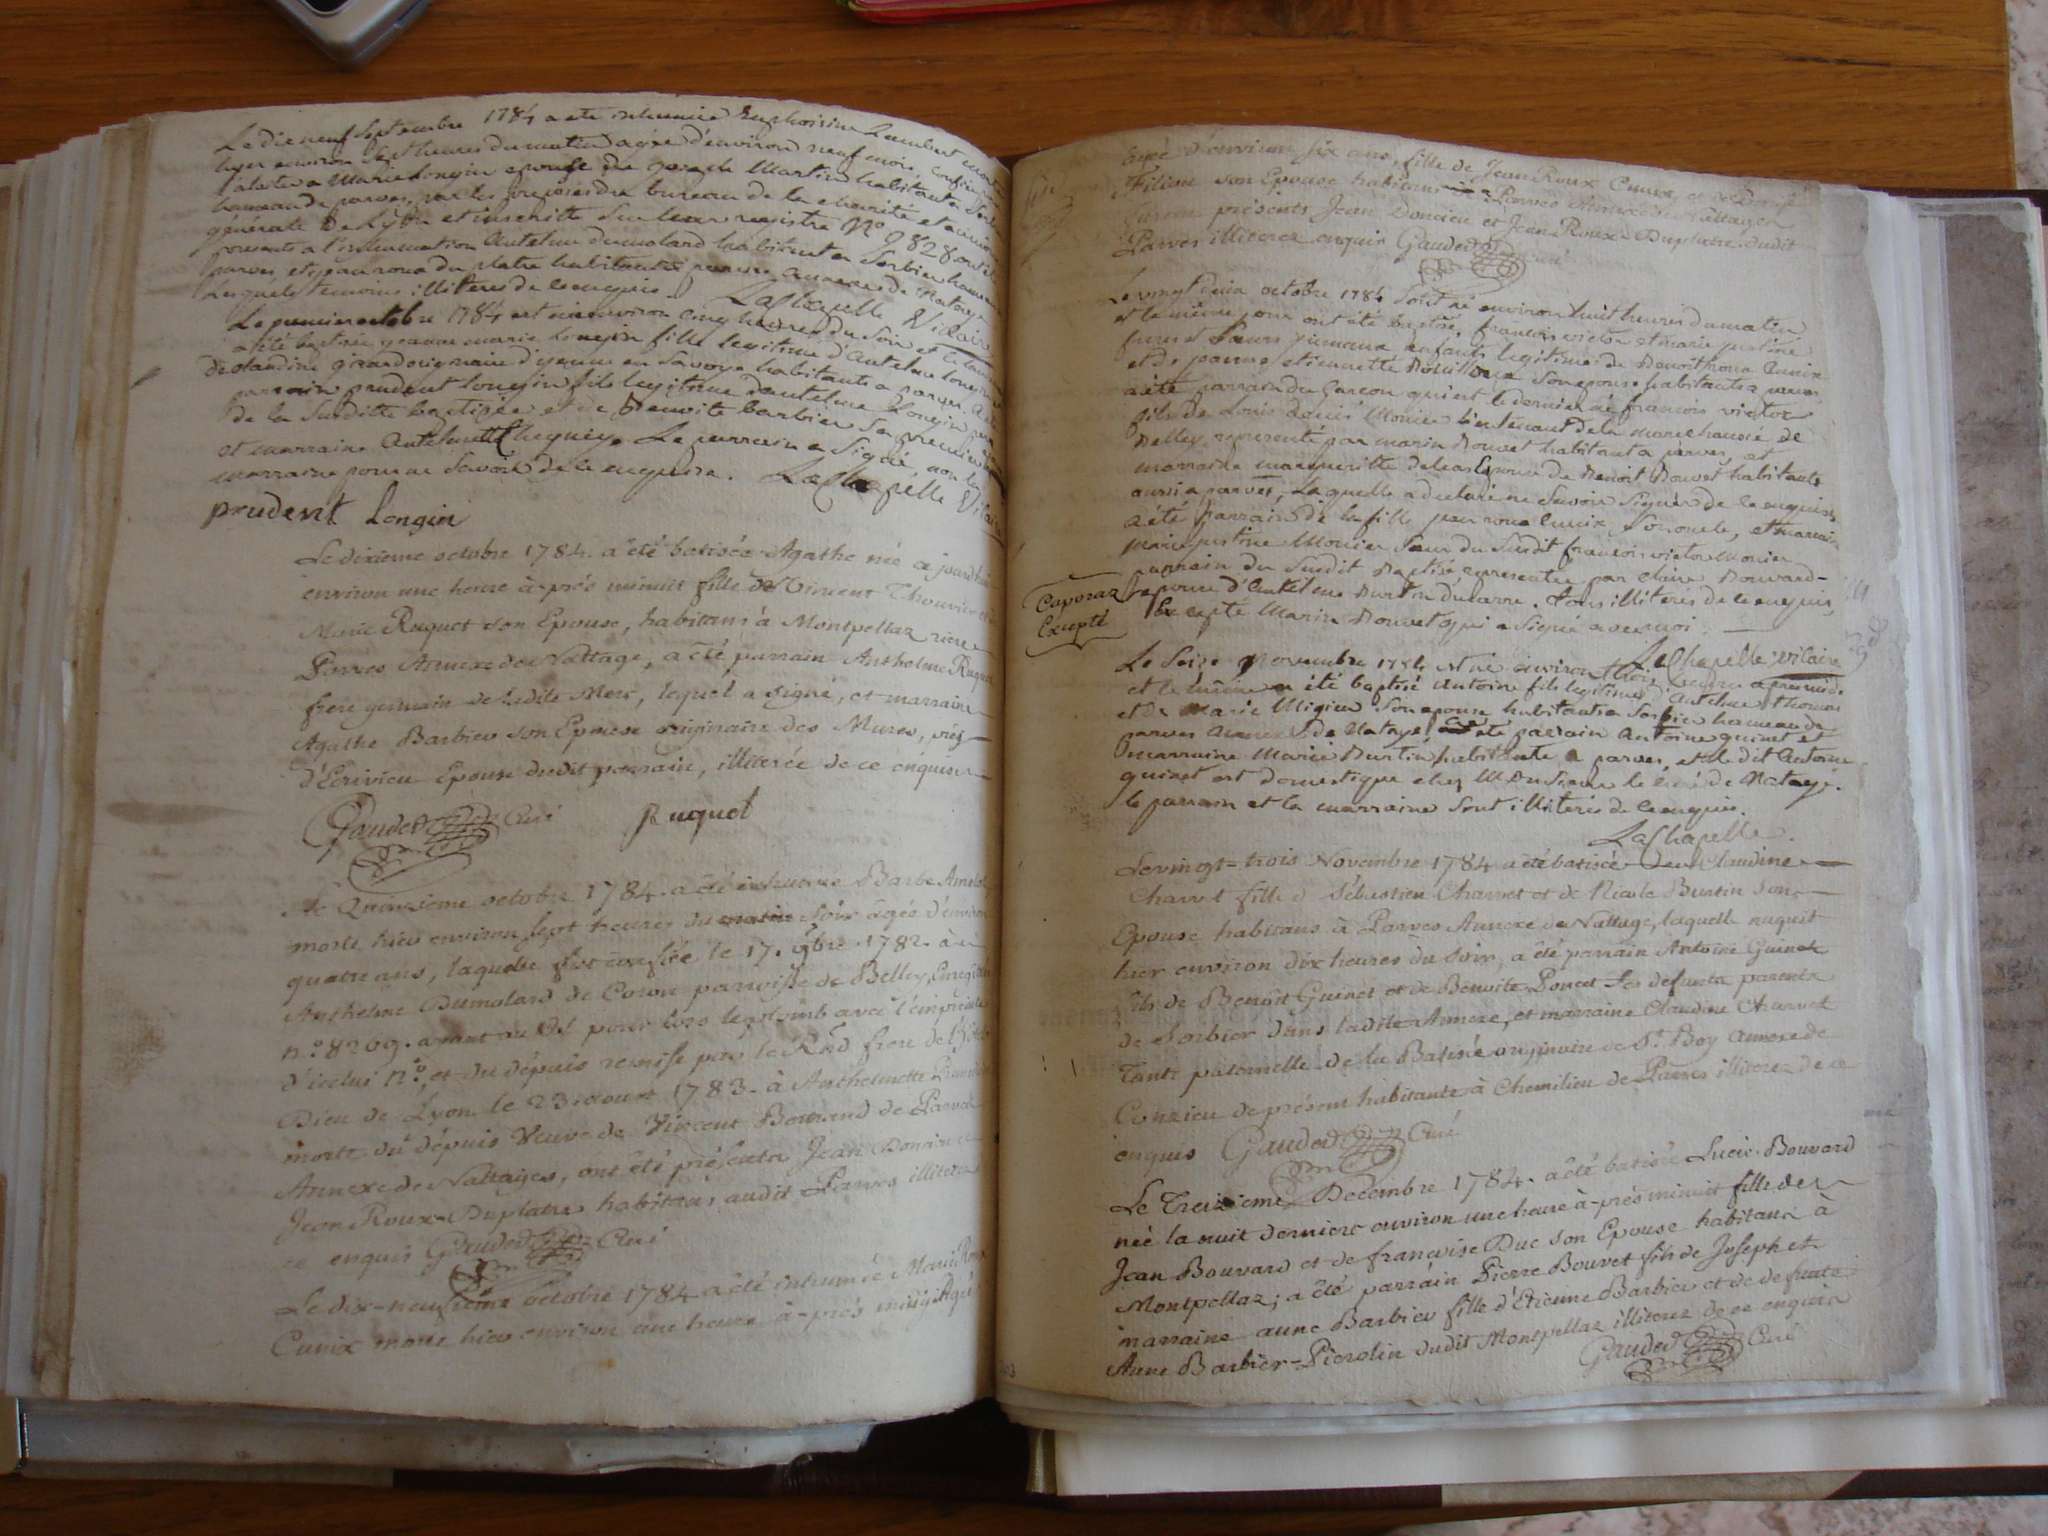 Le dix neuf Septembre 1784 a été inhumée Euphoisine Lambert morte
hyer environ sept heures du matin agée d'environ neuf mois, confiée
a Marie Longin epouse de Joseph Martin habitant a Sorbier
hameau de parves, par les préposés du bureau de la charité et aumone
générale de Lyon et inscritte sur leur registre N° 9828 ont été
présents a l'inhumation Antelme dumolard habitant en Sorbier hameau
parves et jean roux du platre habitant a parves annexe de Natage
Lesquels temoins illiterés de ce enquis. LaChapelle Vicaire
Le premier octobre 1784 est née environ cinq heures du soir et
a été baptisée jeanne marie Longin fille legitime d'Antelme Longin
de claudine girard originaire d'yenne en Savoye habitants a parves. a été
parrain prudent Longin fils legitime d'antelme Longin
de la Susditte baptisée et de Benoite barbier sa premiere
et marraine Antelmette. Le parrain a Signé, non la
marraine pour ne Savoir de ce enquise. LaChapelle Vicaire
prudent Longin
Le dixieme octobre 1784. a été batisée Agathe née ce jourd'hui
environ une heure à-prés minuit fille de Vincent Thouvier et de
Marie Ruquet son Epouse, habitans à Montpellaz riere
Parves Annexe de Nattage, a été parrain Anthelme Ruquet
frere germain de ladite Mere, lequel a signé, et marraine
Agathe Barbier son Epouse originaire des Mures,
d'Ecrivieu Epouse dudit parrain, illiterée de ce enquise
Gauded Curé Ruquet
Le Quinzieme octobre 1784. a été inhumée Barbe
morte hier environ sept heures du matin soir âgée d'environ
quatre ans, laquelle fut confiée le 17. 9bre. 1782. à
Anthelme Dumolard de Coron paroisse de Belley, Enregistrée
n.° 8209. ayant au col pour lors le plomb avec l'empreinte
d'icelui n.°, et du depuis remise par le Rnd frere de l'hotel
Dieu de Lyon le 23. aoust 1783. à Anthelmette
morte du depuis Veuve de Vincent Bouvard de Parves
Annexe de Nattages, ont été présents Jean Doncieu et
Jean Roux-Duplatre habitans audit Parves illiterez
ce enquis Gauded Curé
Le dix-neuvieme octobre 1784 a été inhumée Marie Roux
Cunix morte hier environ une heure à-prés midy
âgée d'environ six ans, fille de Jean Roux Cunix et de
Filion son Epouse habitans à Parves Annexe de Nattages
furent présents Jean Doncieu et Jean Roux-Duplatre dudit
Parves illiterez enquis Gauded Curé
Le vingt deux octobre 1784 Sont né environ huit heures du matin
et le même jour ont été baptisé, francois victor et marie justine
freres et Soeurs jumaux enfants legitime de Benoit roux Cunix
et de jeanne etiennette son epouse habitants a parves
a été parrain du garcon qui est le dernier né francois victor
fils de Louis Monier lieutenant de la marechaussée de
Belley, representé par marin Bouvet habitant a parves, et
marraine margueritte epouse de Benoit Bouvet habitante
aussi a parves, Laquelle a declaré ne Savoir Signer de ce enquise
a été parrain de la fille jean roux cunix, son oncle, et marraine
marie justine Monier Soeur du Susdit francois victor Monier
parrain du Susdit Baptisé representée par claire Bouvard
epouse d'Antelme Burtin Ducarre. Tous illiterés de ce enquis,
Excepté Marin Bouvet qui a Signé avec moi.
Caporaz
Excepté
LaChapelle vicaire
Le Seize Novembre 1784 est né environ trois heures apres midi
et le même a été baptisé Antoine fils legitime d'Antelme thomas
et de Marie Migieu Son epouse habitants a Sorbier hameau de
parves annexe de Natage, a été parrain Antoine guinet et
marraine Marie Burtin habitante a parves, et le dit Antoine
guinet est domestique chez Monsieur le curé de Natage.
le parrain et la marraine Sont illiterés de ce enquis.
LaChapelle.
Le vingt-trois Novembre 1784 a été batisée Claudine
Charvet fille de Sébastien Charvet et de Nicole Burtin son
Epouse habitans à Parves Annexe de Nattage, laquelle naquit
hier environ dix heures du soir, a été parrain Antoine Guinet
fils de Benoit Guinet et de Benoite Poncet ses defunts parents
de Sorbier dans ladite Annexe, et marraine Claudine Charvet
Tante paternelle de la Batisée originaire de St. Boy annexe de
Conzieu de présent habitante à Chemilieu de Parves illiterez de ce
enquis Gauded Curé
Le Treizieme Decembre 1784. a été batisée Lucie Bouvard
née la nuit derniere environ une heure à-prés minuit fille de
Jean Bouvard et de françoise Duc son Epouse habitans à
Montpellaz; a été parrain Pierre Bouvet fils de Joseph et
marraine anne Barbier fille d'Etienne Barbier et de defunte
Anne Barbier-Pierolin dudit Montpellaz illiterez de ce enquis
Gauded Curé